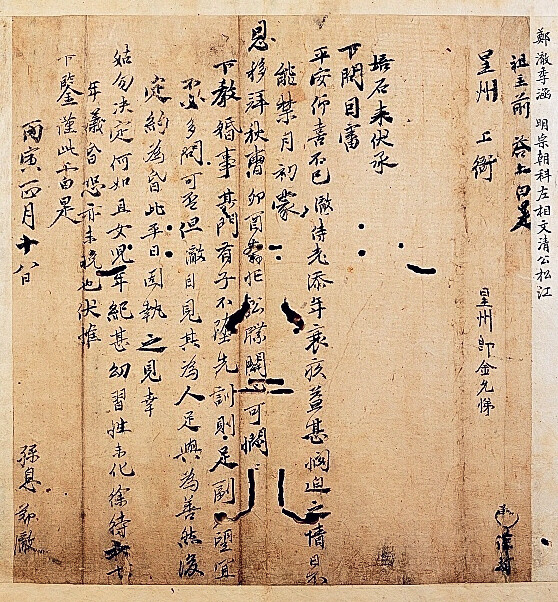 鄭澈季涵 明宗朝科左相文清公松江
祖主前 答上白是
星州 上衙
星州郎金允悌
培石未伏承
下問目審
平安仰喜不已澈侍老添年衰疾益甚憫迫之情日
能禁月初蒙
恩移拜秋曹卯酉奔忙公牒閙可憫
下教婚事其門有子不墜先訓則足副望宜
不必多問可否但澈目見其為人足與為善然後
定約為昏此平日固執之見幸
姑勿决定何如且女兒年紀甚幼習性未化徐待
年儀昏恐亦未晩也伏惟
下鑒謹此上白是
丙寅四月十八日
孫息鄭澈